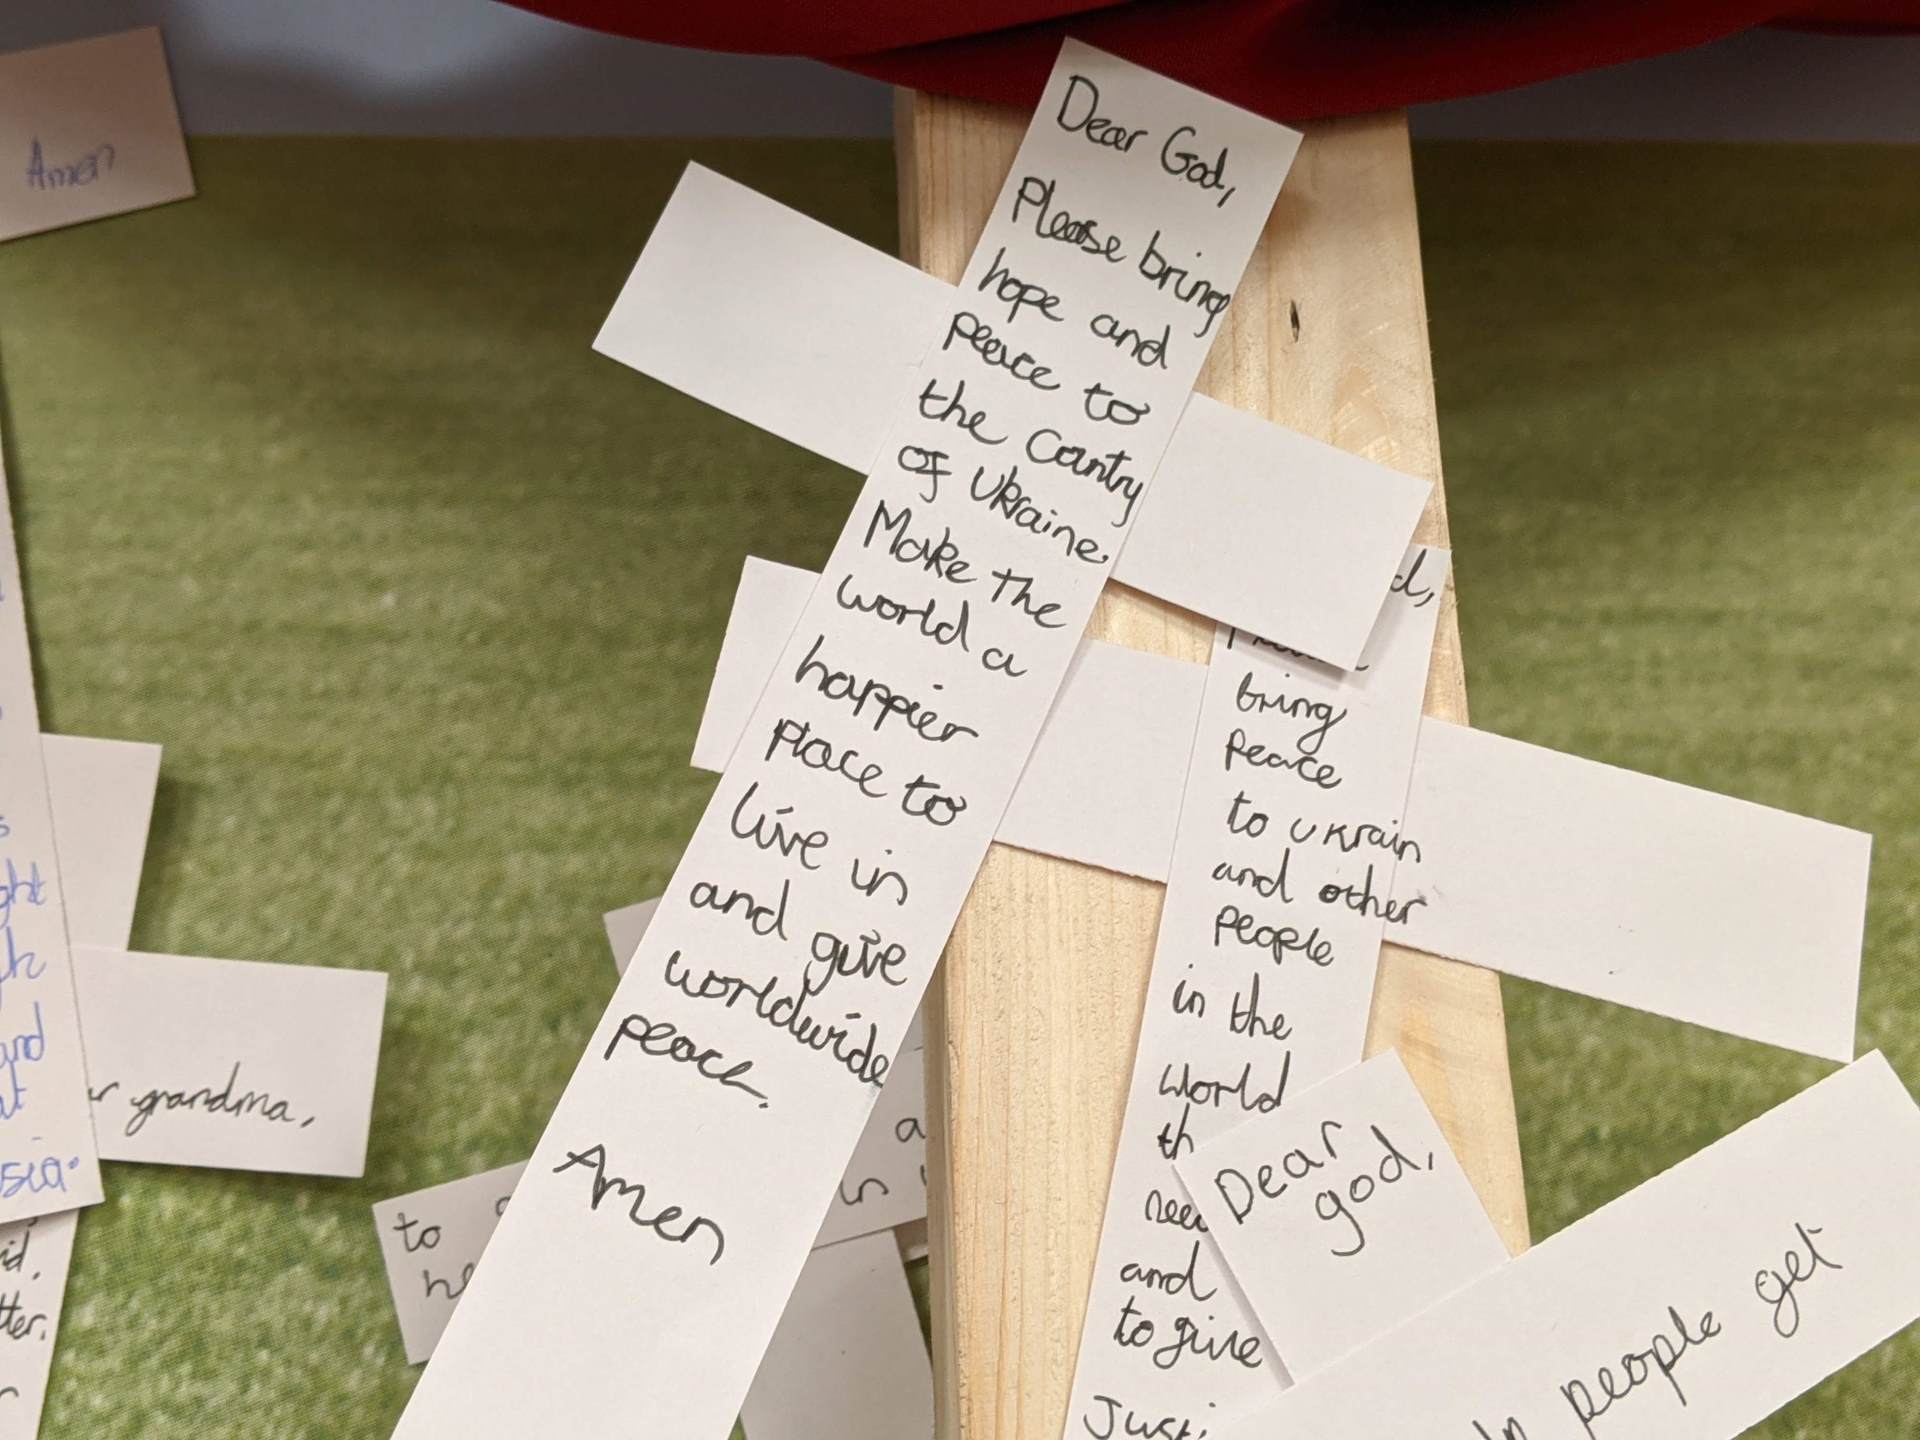 Amen
Dear God,
Please bring
hope and
peace to
the Country
of Ukraine.
Make the
world a
happier
place to
live in
and give
worldwide
peace.
Amen
d,
bring
Peace
to Ukrain
and other
people
in the
world
th
need
and
to give
Justi
Dear
god,
people get
grandma,
to
he
a
in
ght
and
sia.
id.
tter.